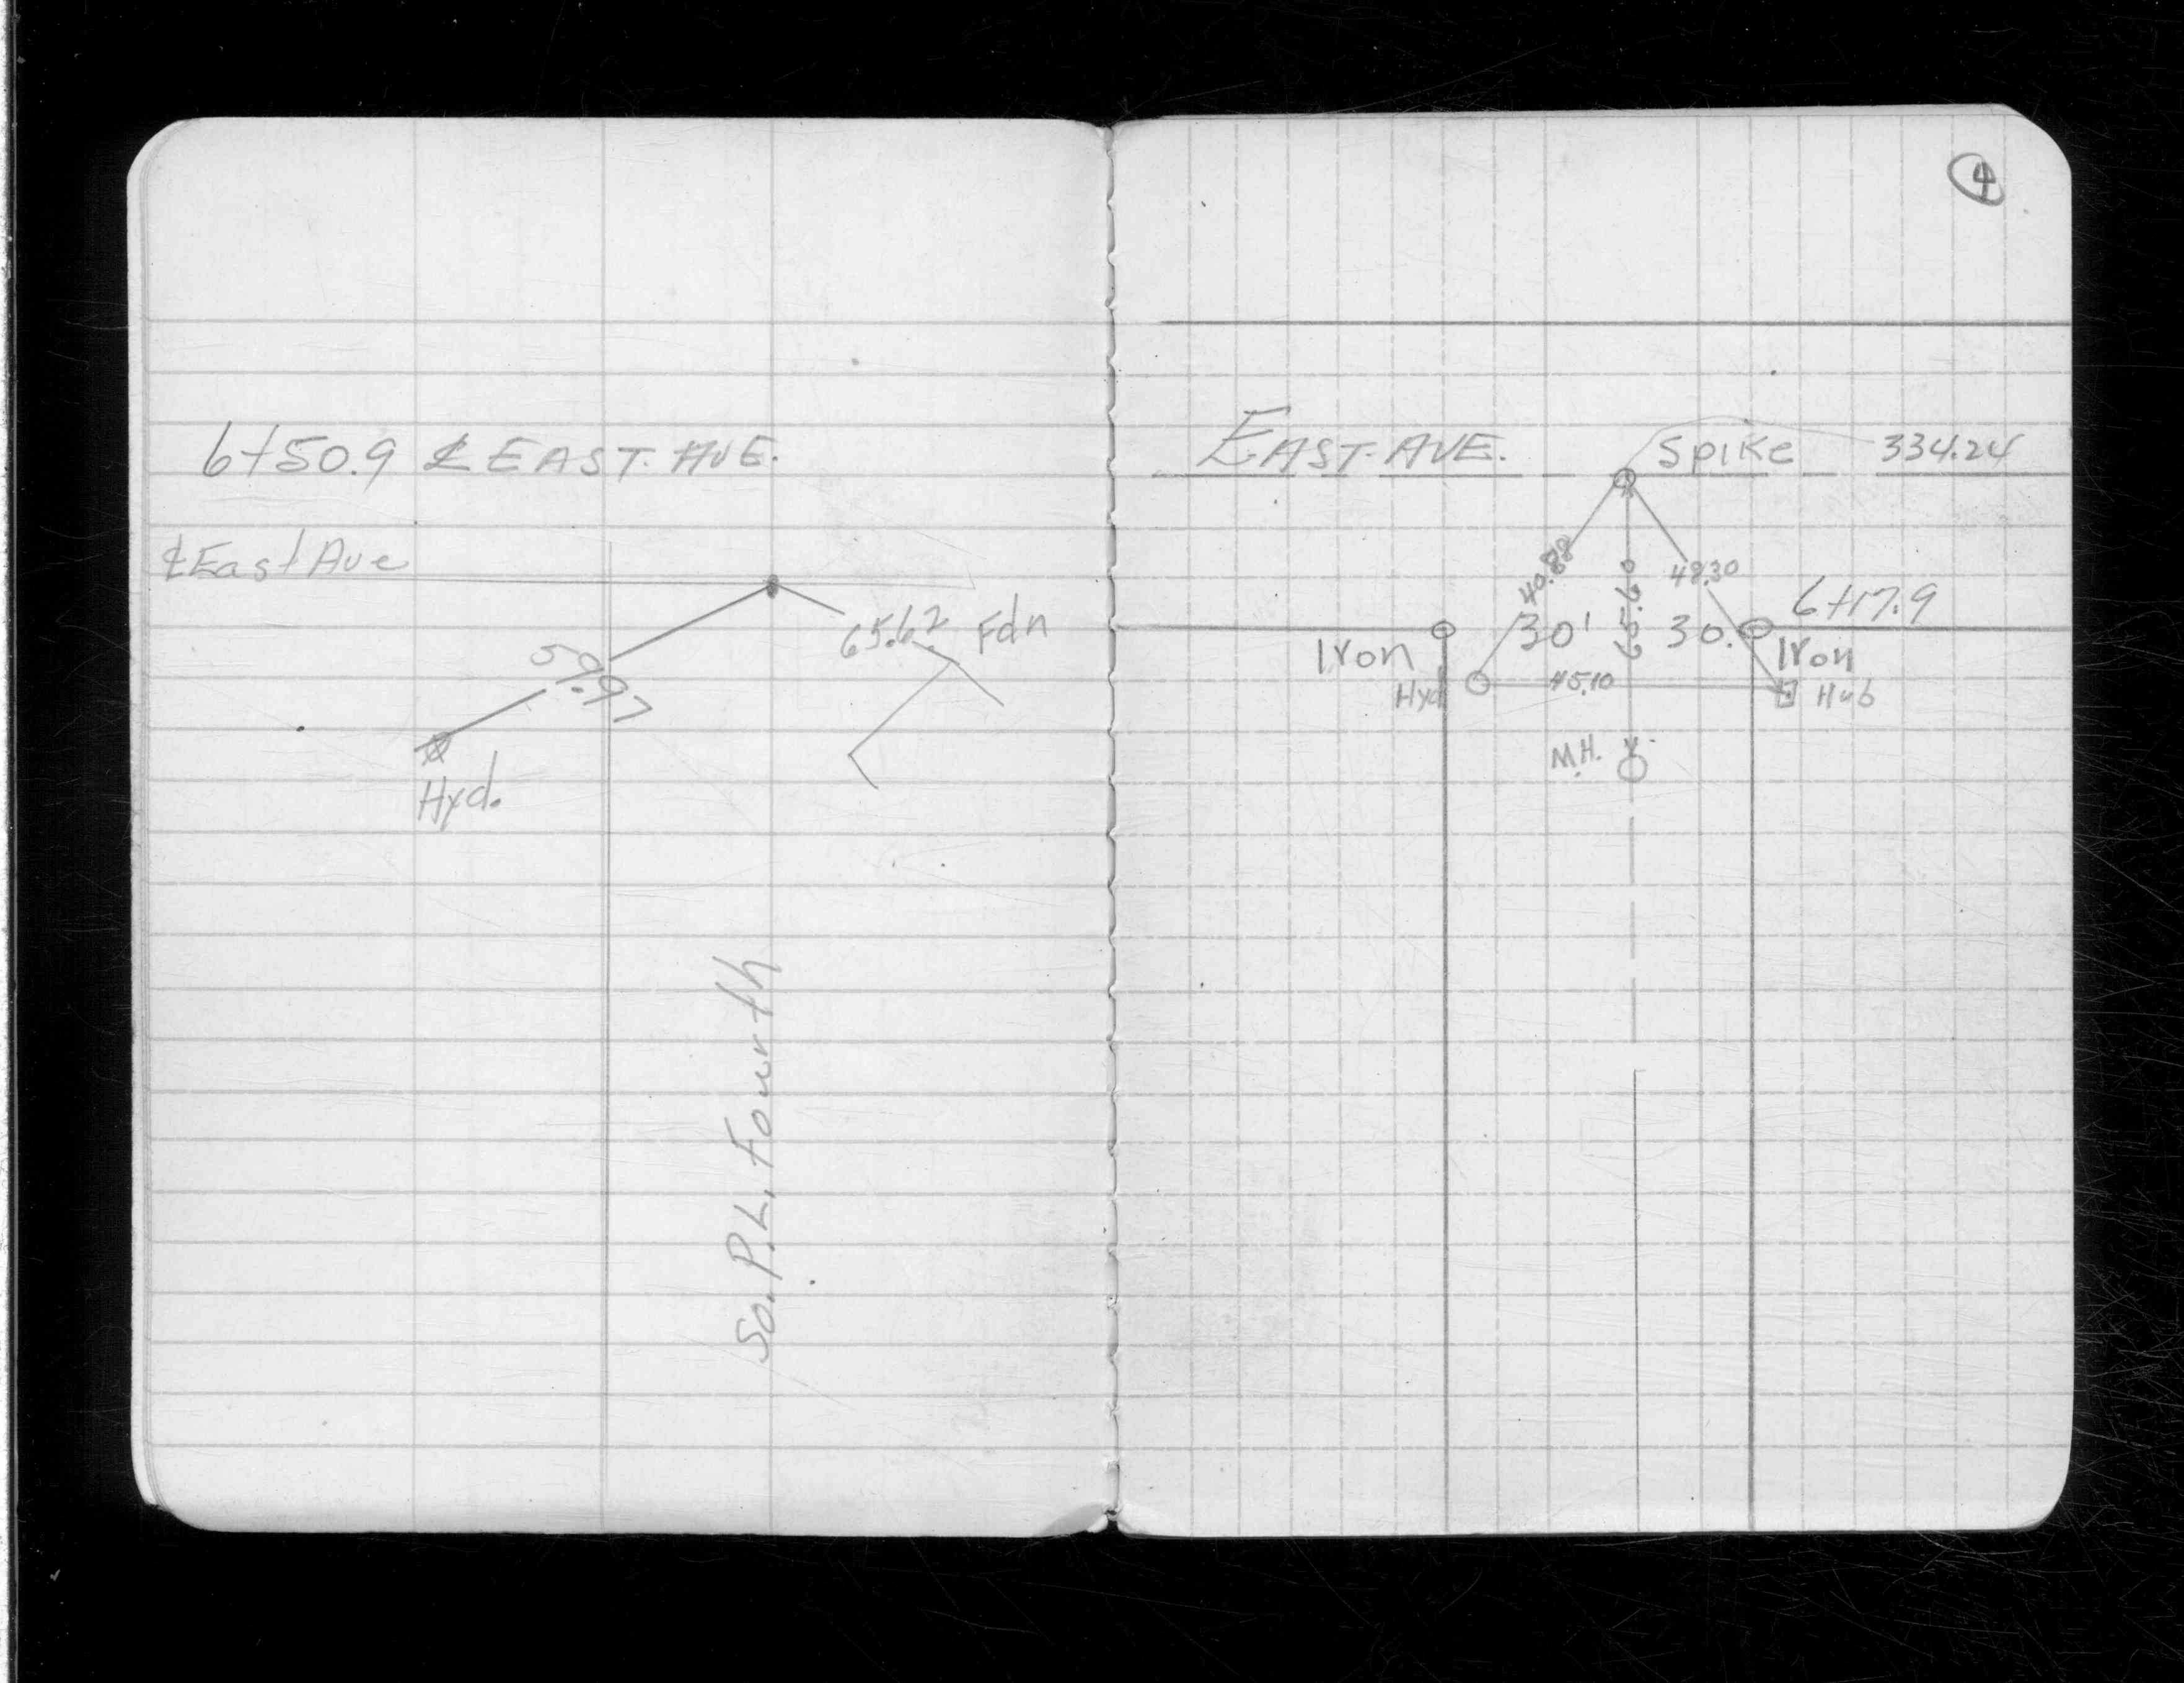 6+50.9 ℄ EAST. AVE.
℄ East Ave
65.62 Fdn
59.97
Hyd.
So. P.L. Fourth
4
EAST. AVE. Spike 334.24
40.88
48.30
6+17.9
30' 30.
Iron Iron
Hyd 45.10 Hub
M.H.